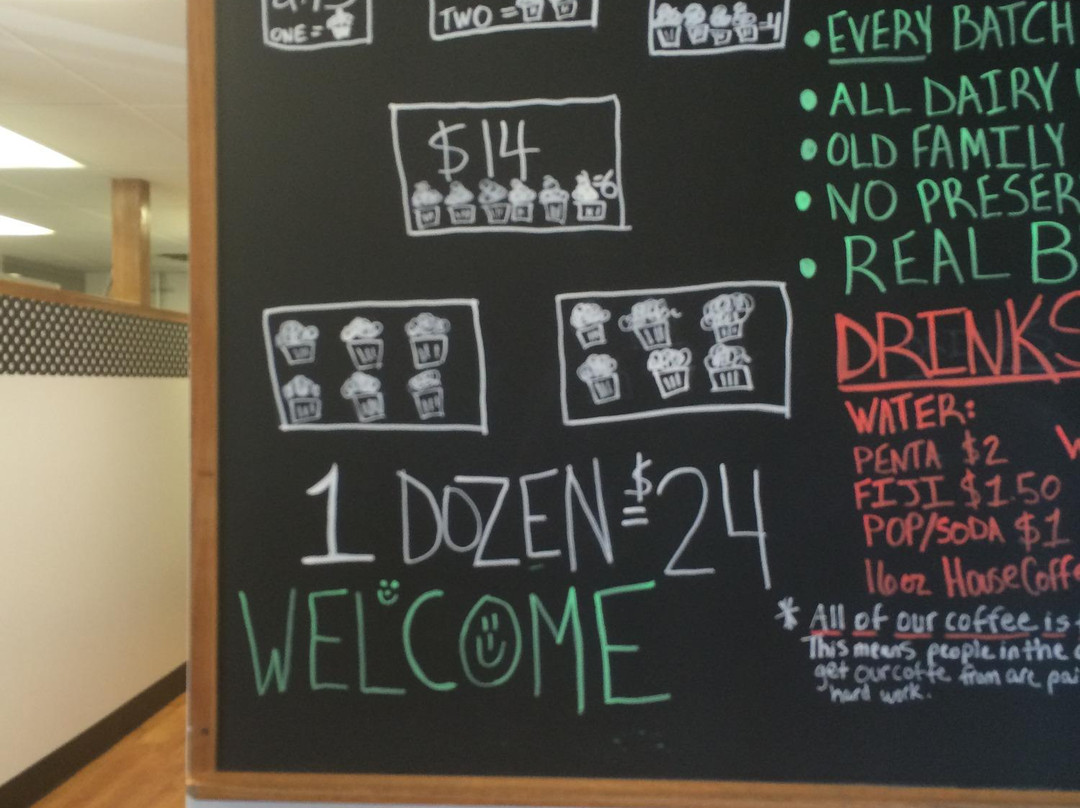 ONE =
TWO =
=4
$14
=6
1 DOZEN = $24
WELCOME
• EVERY BATCH
• ALL DAIRY
• OLD FAMILY
• NO PRESER
• REAL B
DRINKS
WATER:
PENTA $2
FIJI $1.50
POP/SODA $1
16oz House Coffe
* All of our coffee is
This means people in the
get our coffe from are pai
hard work.